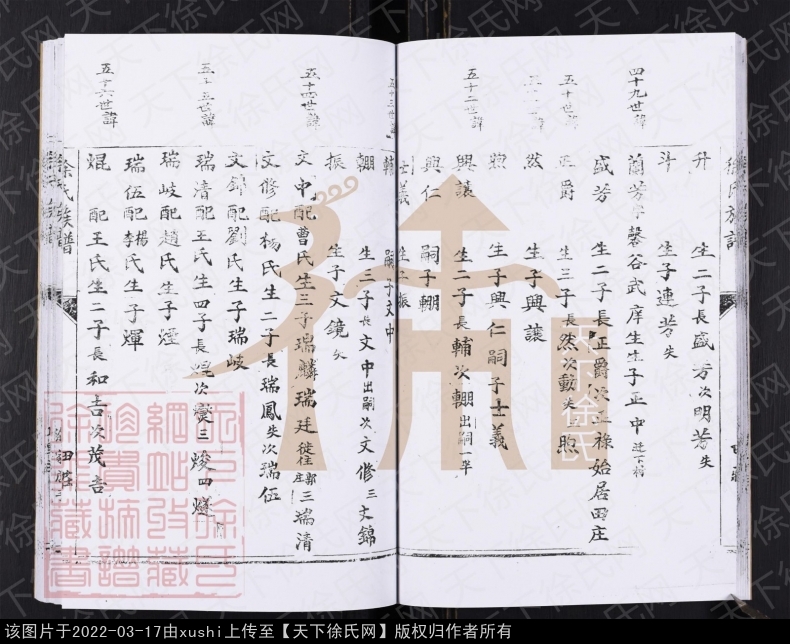 徐氏族譜
升 生二子長盛芳次明芳失
斗 生子連芳失
四十九世諱
蘭芳字馨谷武庠生生子正中
盛芳 生二子長正爵次正祿始居田庄
五十世諱
正爵 生三子長然次動失三煦
然 生子興讓
煦 生子興仁嗣子士義
五十二世諱
興讓 生二子長輔次棚出嗣一半
興仁 嗣子棚
士義 生子振
五十三世諱
輔 嗣子文中
棚 生三子長文中出嗣次文修三文錦
振 生子文鏡失
五十四世諱
文中配曹氏生三子瑞麟瑞廷徙郭庄三瑞清
文修配楊氏生二子長瑞鳳失次瑞伍
文錦配劉氏生子瑞岐
五十五世諱
瑞清配王氏生四子長焜次燮三焌四燧
瑞岐配趙氏生子煙
瑞伍配楊李氏生子煇
五十六世諱
焜 配王氏生二子長和吉次茂吉
徐氏族譜
天下徐氏网
该图片于2022-03-17由xushi上传至【天下徐氏网】版权归作者所有